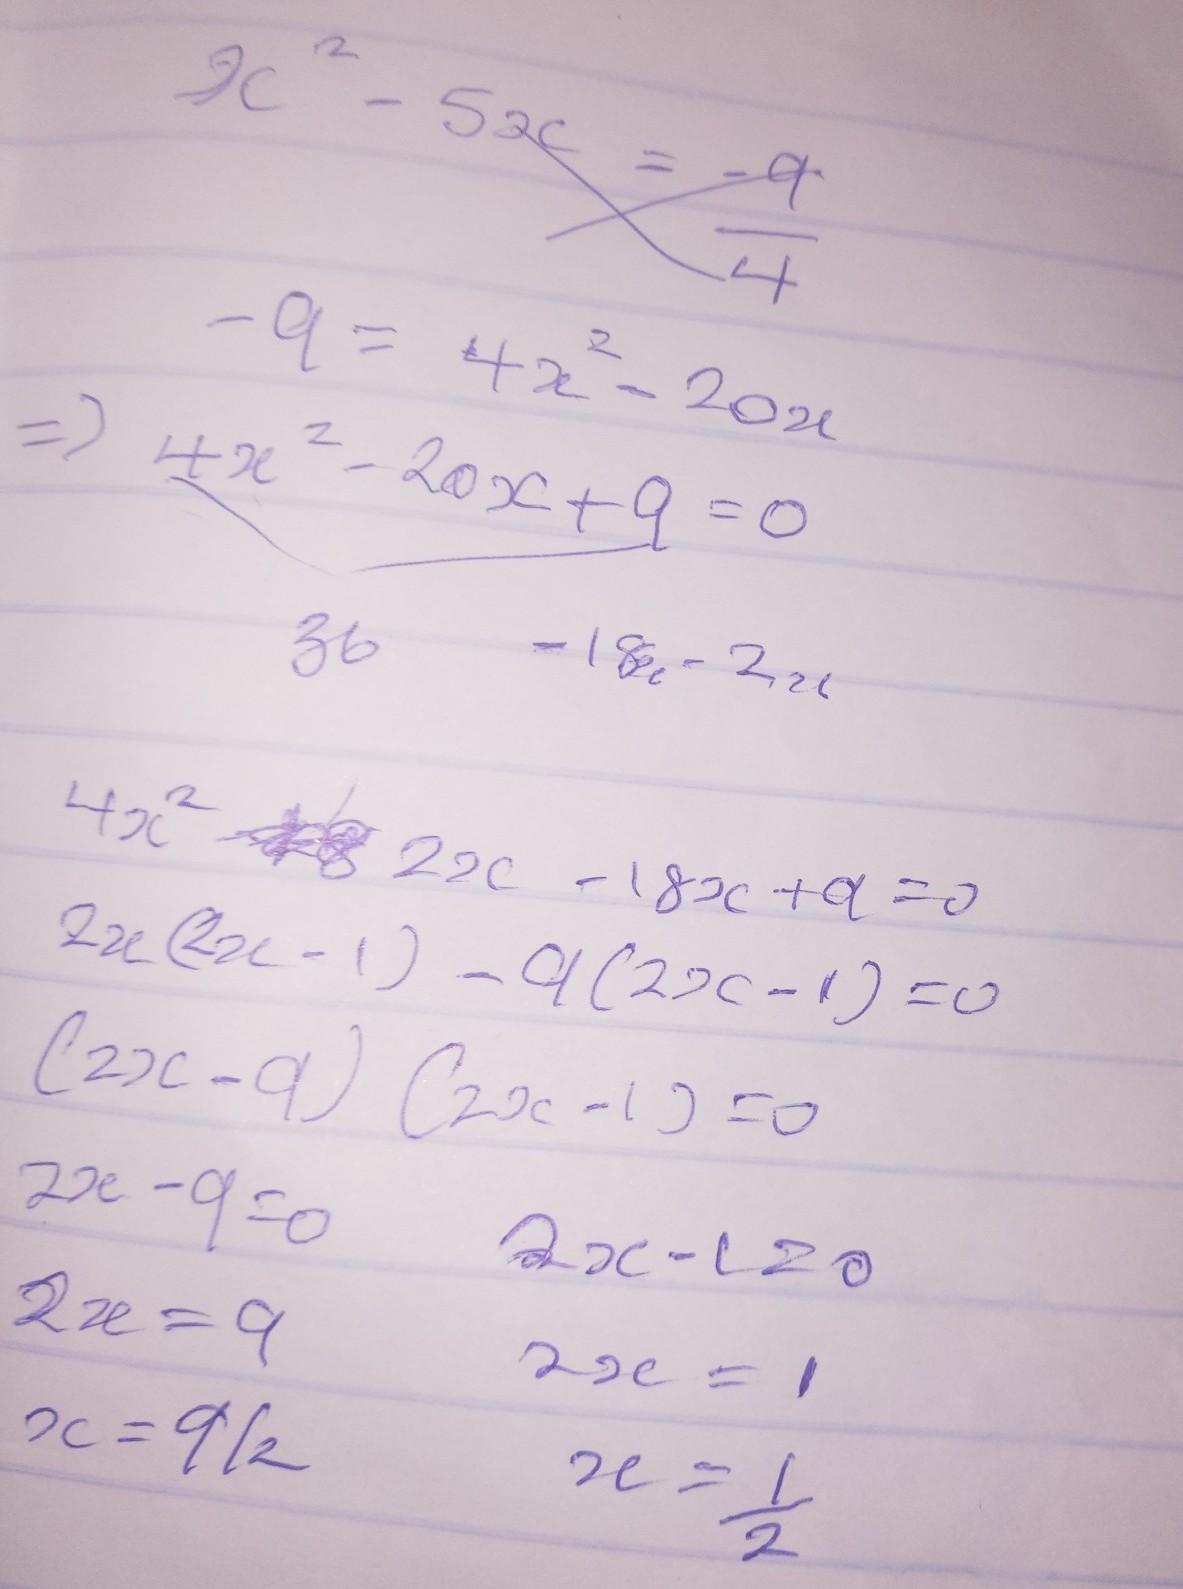 x² - 5x = -9/4
-9 = 4x² - 20x
=> 4x² - 20x + 9 = 0
36 -18x - 2x
4x² - 2x - 18x + 9 = 0
2x(2x - 1) - 9(2x - 1) = 0
(2x - 9) (2x - 1) = 0
2x - 9 = 0 2x - 1 = 0
2x = 9 2x = 1
x = 9/2 x = 1/2